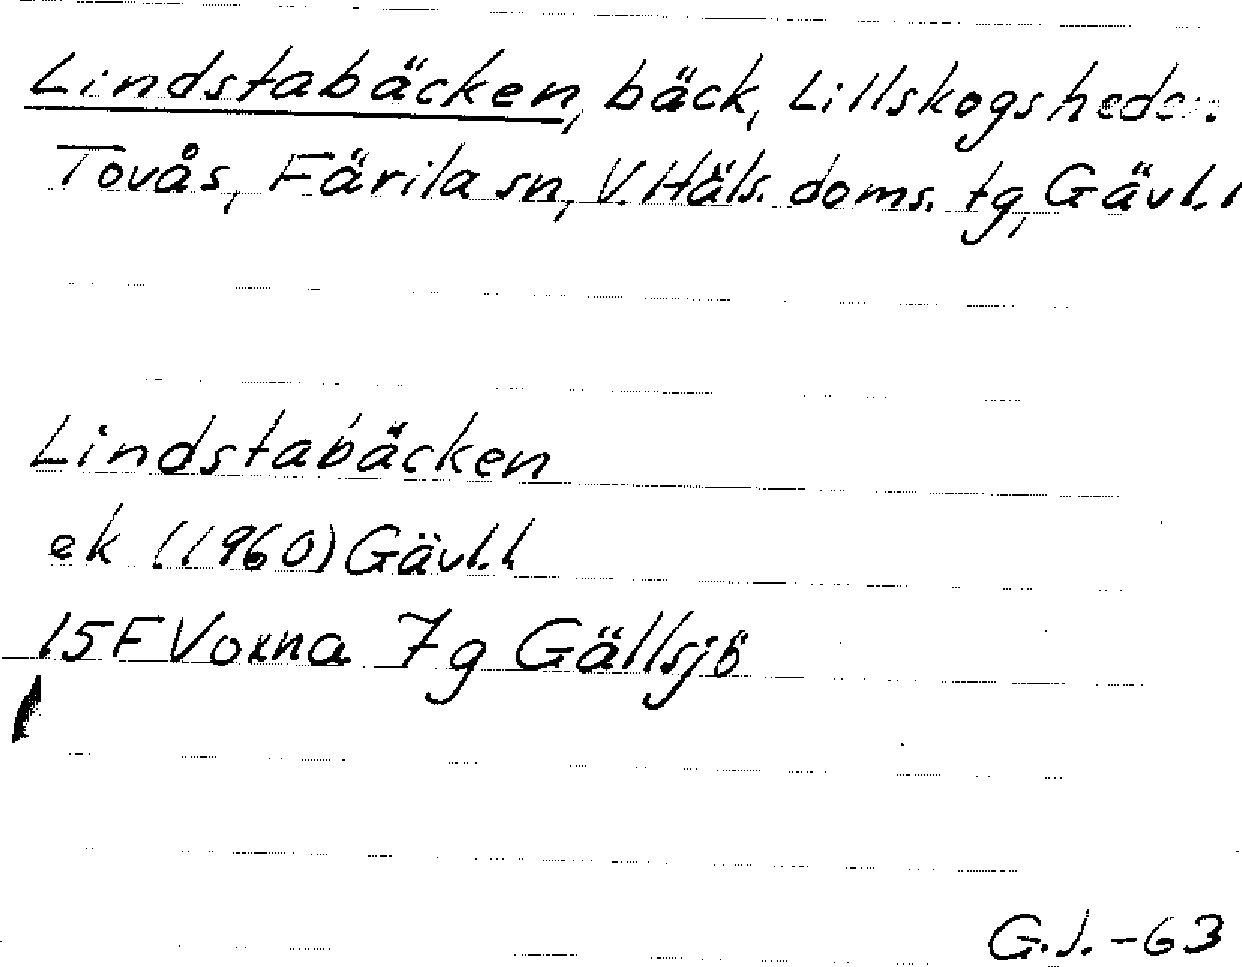 Lindstabäcken, bäck, Lillskogsheden
Tovås, Färila sn, V. Häls. doms. tg, Gävl.l
Lindstabäcken
ek (1960) Gävl.l
15F Voxna 7g Gällsjö
G.J. -63